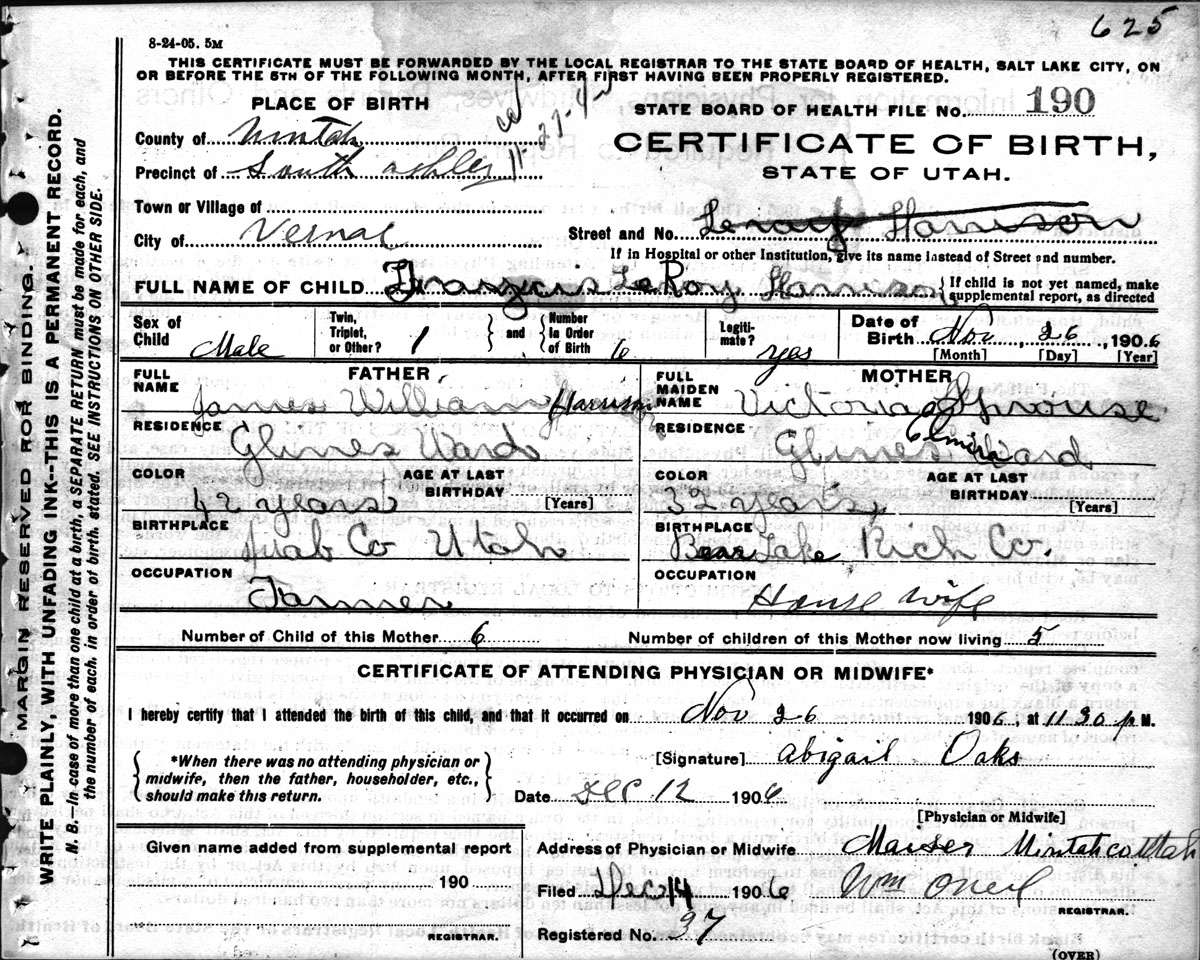 625
8-24-05. 5M
THIS CERTIFICATE MUST BE FORWARDED BY THE LOCAL REGISTRAR TO THE STATE BOARD OF HEALTH, SALT LAKE CITY, ON
OR BEFORE THE 5TH OF THE FOLLOWING MONTH, AFTER FIRST HAVING BEEN PROPERLY REGISTERED.
PLACE OF BIRTH
STATE BOARD OF HEALTH FILE NO. 190
County of Uintah
CERTIFICATE OF BIRTH,
Precinct of South Ashley
STATE OF UTAH.
Town or Village of
City of Vernal
Street and No. Leroy Harrison
If in Hospital or other Institution, give its name instead of Street and number.
FULL NAME OF CHILD Francis LeRoy Harrison { If child is not yet named, make supplemental report, as directed
Sex of Child Male Twin, Triplet, or Other? 1 } and { Number in Order of Birth 6 Legiti-mate? yes Date of Birth Nov 26, 1906
[Month] [Day] [Year]
FATHER
MOTHER
FULL NAME James William Harrison
FULL MAIDEN NAME Victoria Sprouse
RESIDENCE Glines Ward
RESIDENCE Glines Ward
COLOR AGE AT LAST BIRTHDAY 42 years [Years]
COLOR AGE AT LAST BIRTHDAY 32 years [Years]
BIRTHPLACE Juab Co Utah
BIRTHPLACE Bear Lake Rich Co.
OCCUPATION Farmer
OCCUPATION House wife
Number of Child of this Mother 6 Number of children of this Mother now living 5
CERTIFICATE OF ATTENDING PHYSICIAN OR MIDWIFE*
I hereby certify that I attended the birth of this child, and that it occurred on Nov 26 1906, at 11 30 p M.
{ *When there was no attending physician or midwife, then the father, householder, etc., should make this return. }
[Signature] Abigail Oaks
Date Dec 12 1906
[Physician or Midwife]
Given name added from supplemental report
190
REGISTRAR.
Address of Physician or Midwife Maiser Uintah co Utah
Filed Dec 14 1906 Wm Oneil
REGISTRAR.
Registered No. 37
(OVER)
MARGIN RESERVED FOR BINDING.
WRITE PLAINLY, WITH UNFADING INK--THIS IS A PERMANENT RECORD.
N. B.--In case of more than one child at a birth, a SEPARATE RETURN must be made for each, and
the number of each, in order of birth, stated. SEE INSTRUCTIONS ON OTHER SIDE.